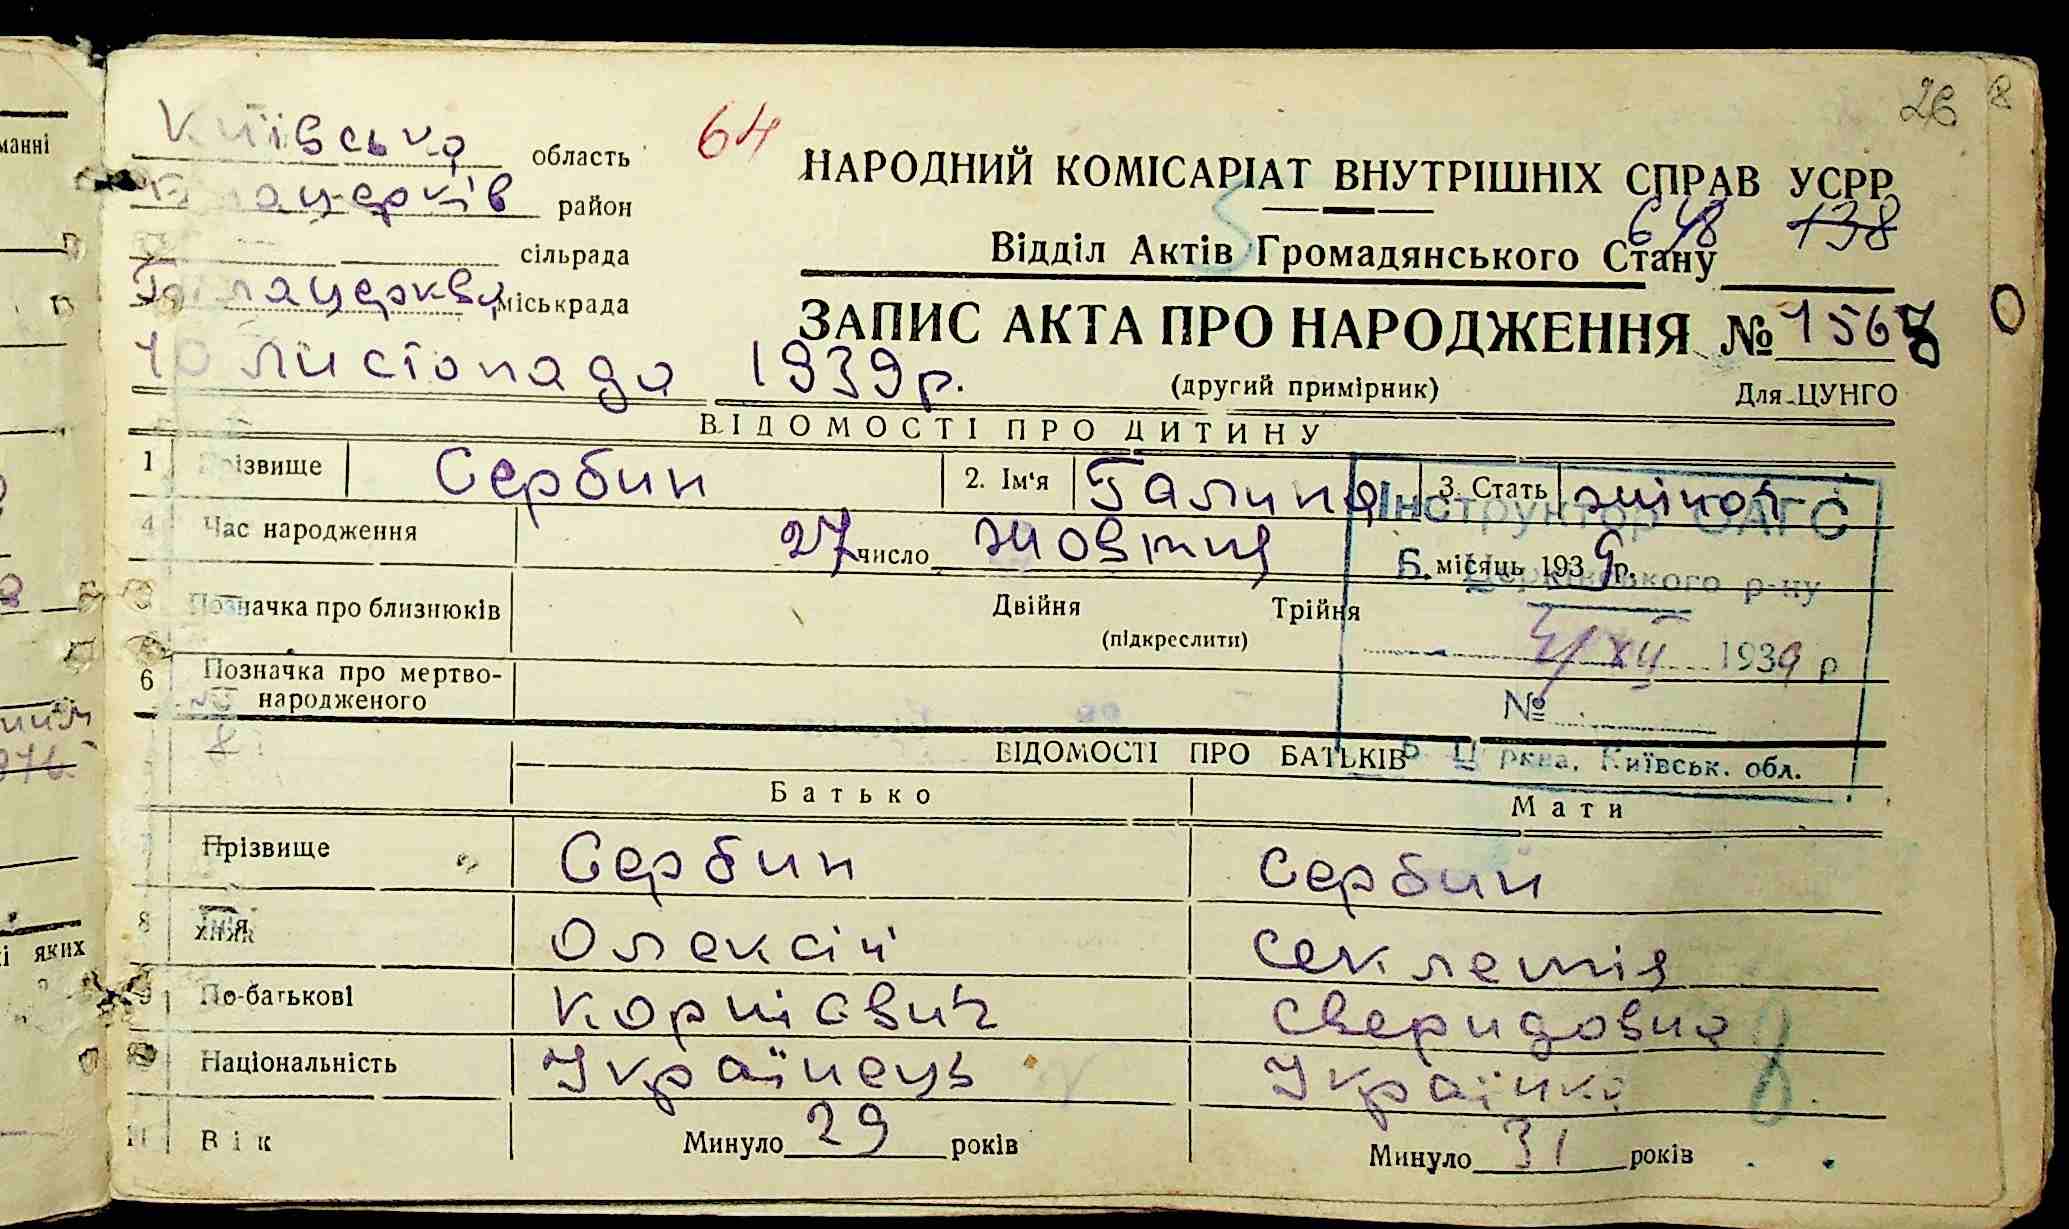 26 8
Київська область 64
НАРОДНИЙ КОМІСАРІАТ ВНУТРІШНІХ СПРАВ УСРР
Білацерків район
648 138
сільрада
Відділ Актів Громадянського Стану
Білацерква міськрада
ЗАПИС АКТА ПРО НАРОДЖЕННЯ № 1568
10 листопада 1939 р.
(другий примірник) Для ЦУНГО
ВІДОМОСТІ ПРО ДИТИНУ
1 Прізвище Сербин 2. Ім'я Галина 3. Стать жіноч
Інструктор ОАГС
4 Час народження 27 число жовтня місяць 1939 р.
Б. Церківського р-ну
5 Позначка про близнюків Двійня Трійня
(підкреслити)
3/XII 1939 р
6 Позначка про мертво-
народженого
№
ВІДОМОСТІ ПРО БАТЬКІВ
Б. Церква, Київськ. обл.
Батько Мати
7 Прізвище Сербин Сербин
8 Ім'я Олексій Секлетія
9 По-батькові Корнієвич Сверидовна
8
10 Національність Українець Українка
11 Вік Минуло 29 років Минуло 31 років
манні
і яких